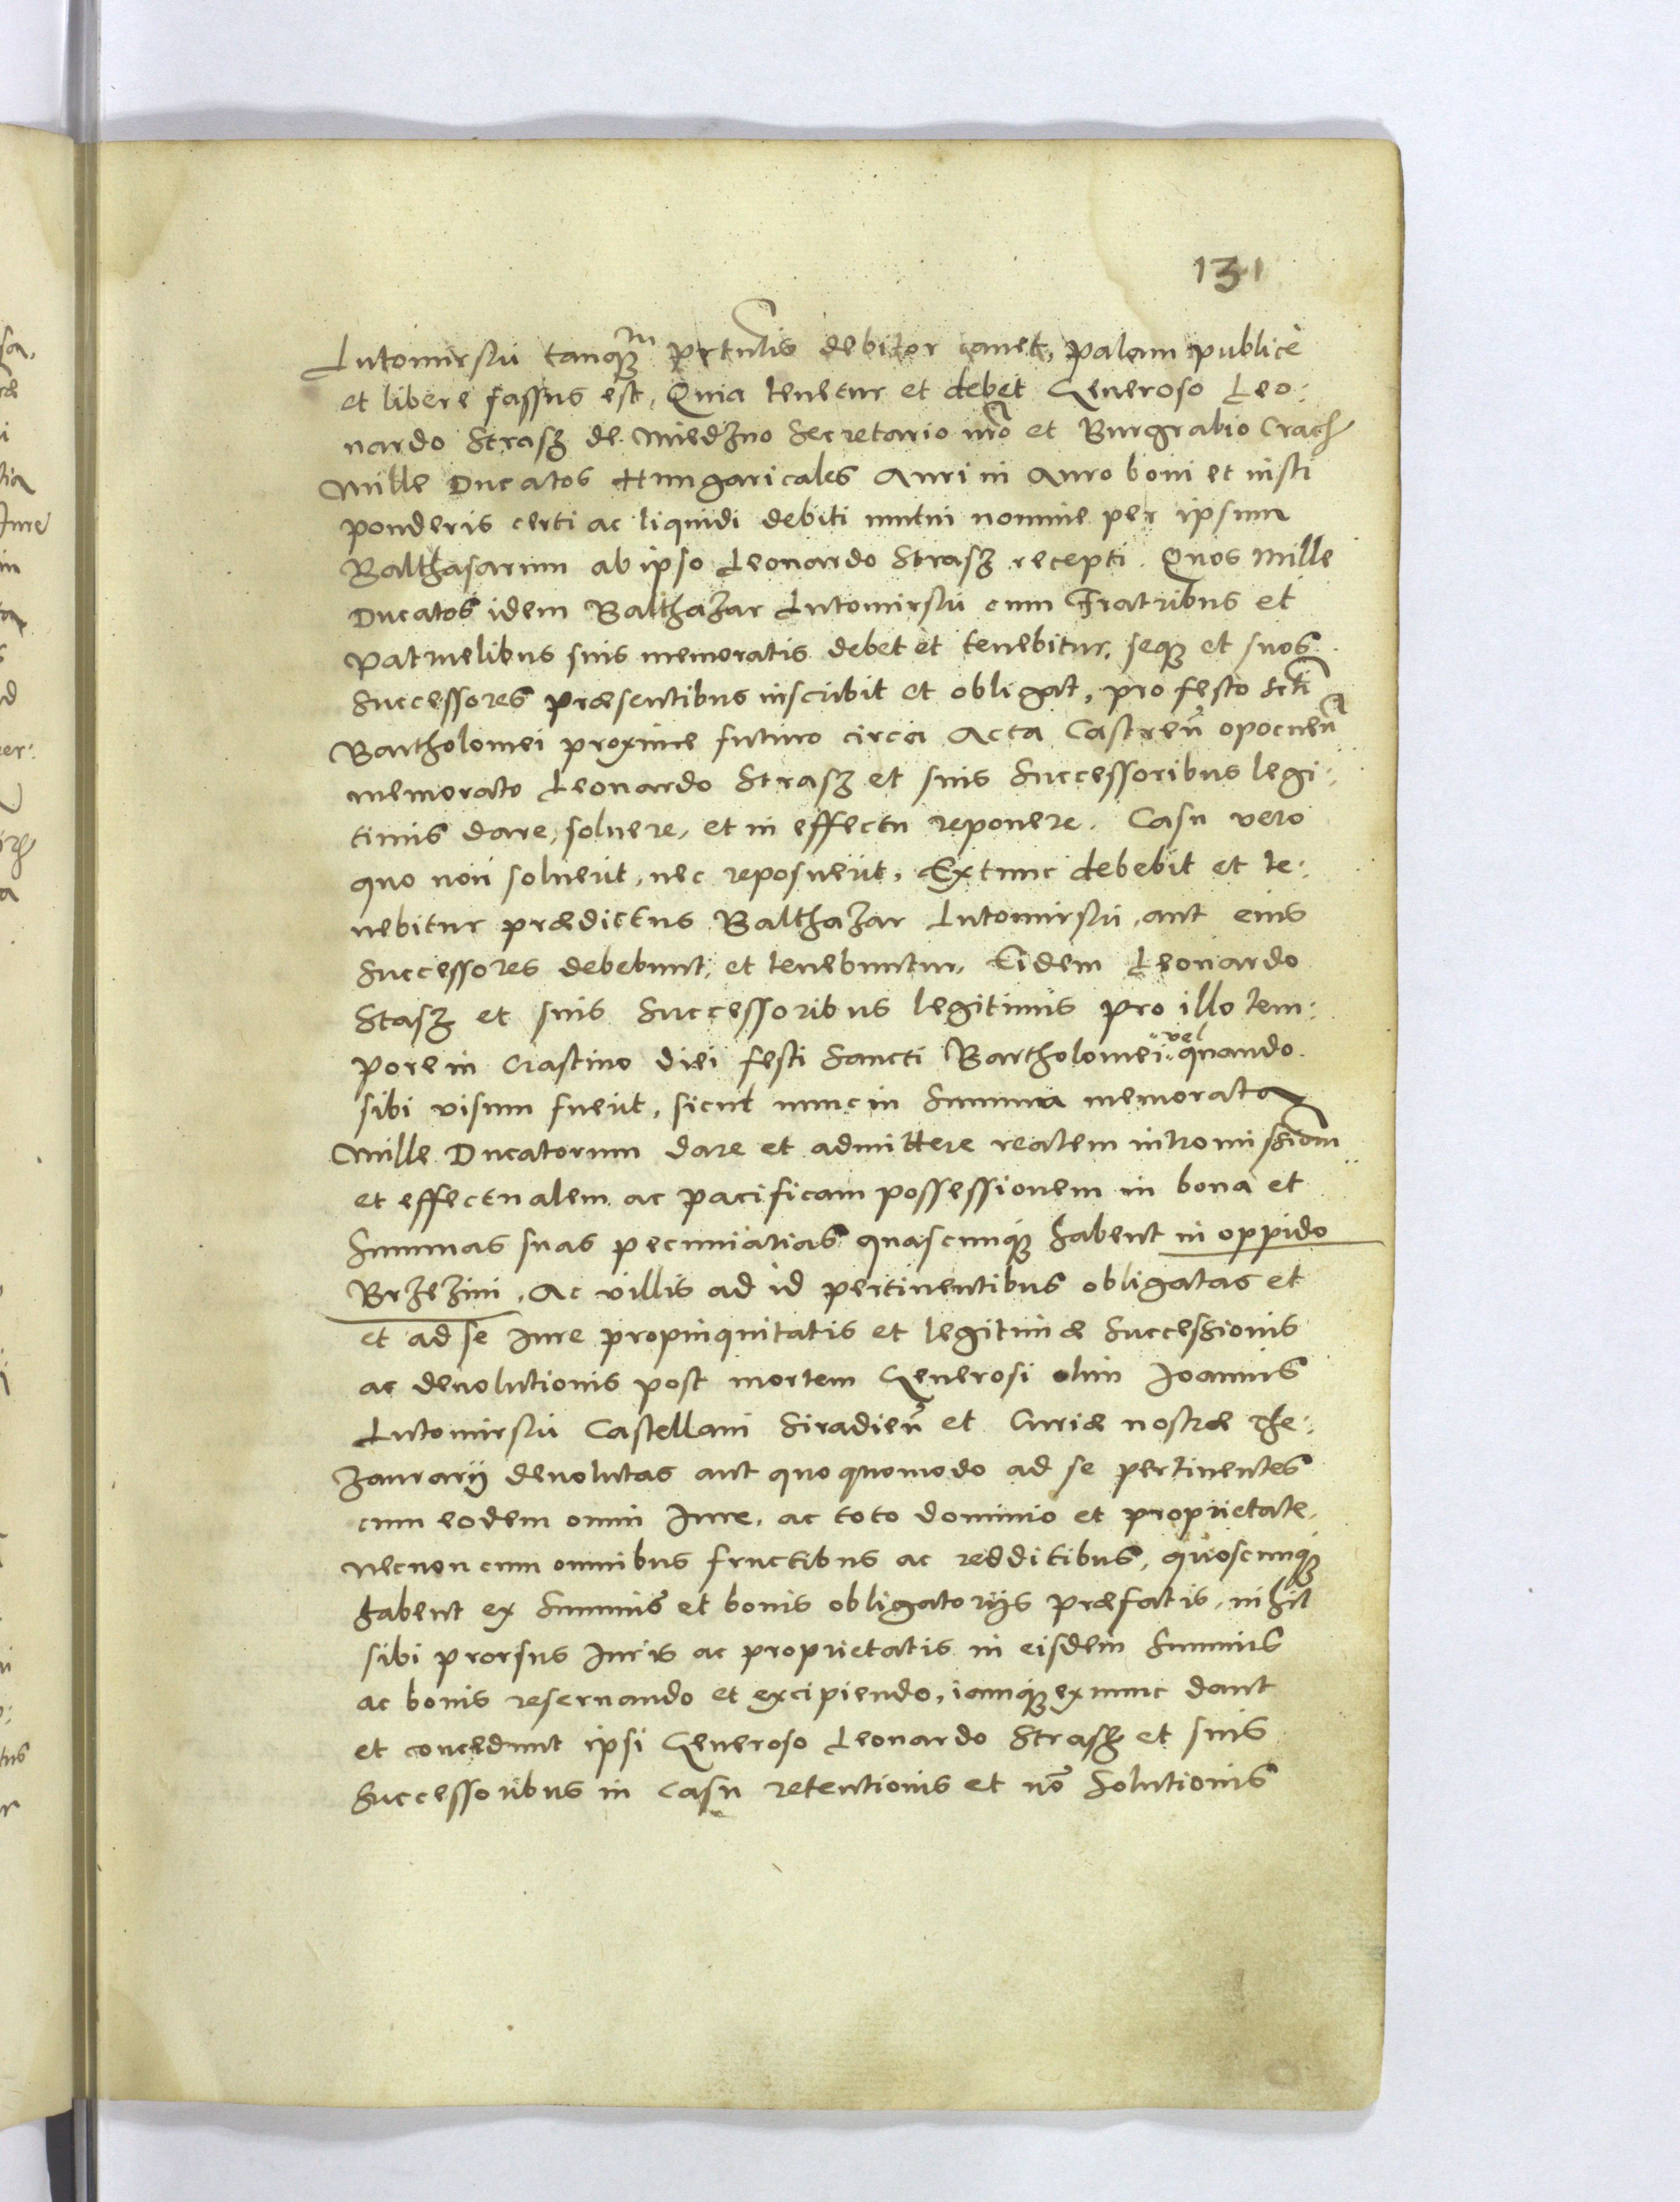 131
Lutomirskÿ tanqȝm debitor cauet, palam publicè
et libere fassus est, Quia tenetur et debet Generoso Leo:
nardo Strasz de Miedzno Secretario nr̄o et Burgrabio Crach
Mille Ducatos Hungaricales Auri in Auro boni et iusti
ponderis certi ac liquidi debiti mutui nomine per ipsum
Balthasarum ab ipso Leonardo Strasz recepti. Quos Mille
Ducatos idem Balthazar Lutomirskÿ cum Fratribus et
patruelibus suis memoratis debet et tenebitur, seqȝ et suos
Successores præsentibus inscribit et obligat, pro festo Scti
Bartholomei proxime futuro circa Acta Castreñ opocueñ
memorato Leonardo Strasz et suis Successoribus legi:
timis dare, soluere, et in effectu reponere. Casu vero
quo non soluerit, nec reposuerit, Extunc debebit et te:
nebitur prædictus Balthazar Lutomirskÿ, aut eius
Successores debebunt, et tenebuntur, Eidem Leonardo
Stasz et suis Successoribus legitimis pro illo tem:
pore in Crastino diei festi Sancti Bartholomei vel quando
sibi visum fuerit, sicut nunc in Summa memorata
Mille Ducatorum dare et admittere realem intromissiom
et effectualem ac pacificam possessionem in bona et
Summas suas pecuniarias quascunqȝ habent in oppido
Brzezini, Ac villis ad id pertinentibus obligatas et
et ad se Iure propinquitatis et legitimæ Successionis
ac deuolutionis post mortem Generosi olim Ioannis
Lutomirskÿ Castellani Siradieñ et Curiæ nostræ The:
zaurarij deuolutas aut quoquomodo ad se pertinentes
cum eodem omni Iure, ac toto dominio et proprietate,
necnon cum omnibus fructibus ac redditibus, quoscunqȝ
habent ex Summis et bonis obligatorijs præfatis, nihil
sibi prorsus Iuris ac proprietatis in eisdem Summis
ac bonis reseruando et excipiendo, iamqȝ ex nunc dant
et concedunt ipsi Generoso Leonardo Strasz et suis
Successoribus in casu retentionis et nō Solutionis